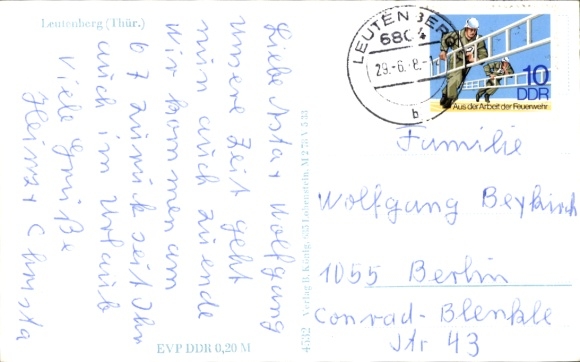 Leutenberg (Thür.)
Liebe Asta + Wolfgang
unsere Zeit geht
nun auch zu ende
Wir kommen am
6 7 zurück seit Ihr
auch im Urlaub
Viele Grüße
Heinz + Christa
EVP DDR 0,20 M
4532 Verlag B. König, 685 Lobenstein, M 273 V 5 34
LEUTENBERG
6804
29.-6.-8
b
10
DDR
Aus der Arbeit der Feuerwehr
Familie
Wolfgang Beykirch
1055 Berlin
Conrad-Blenkle
Str 43